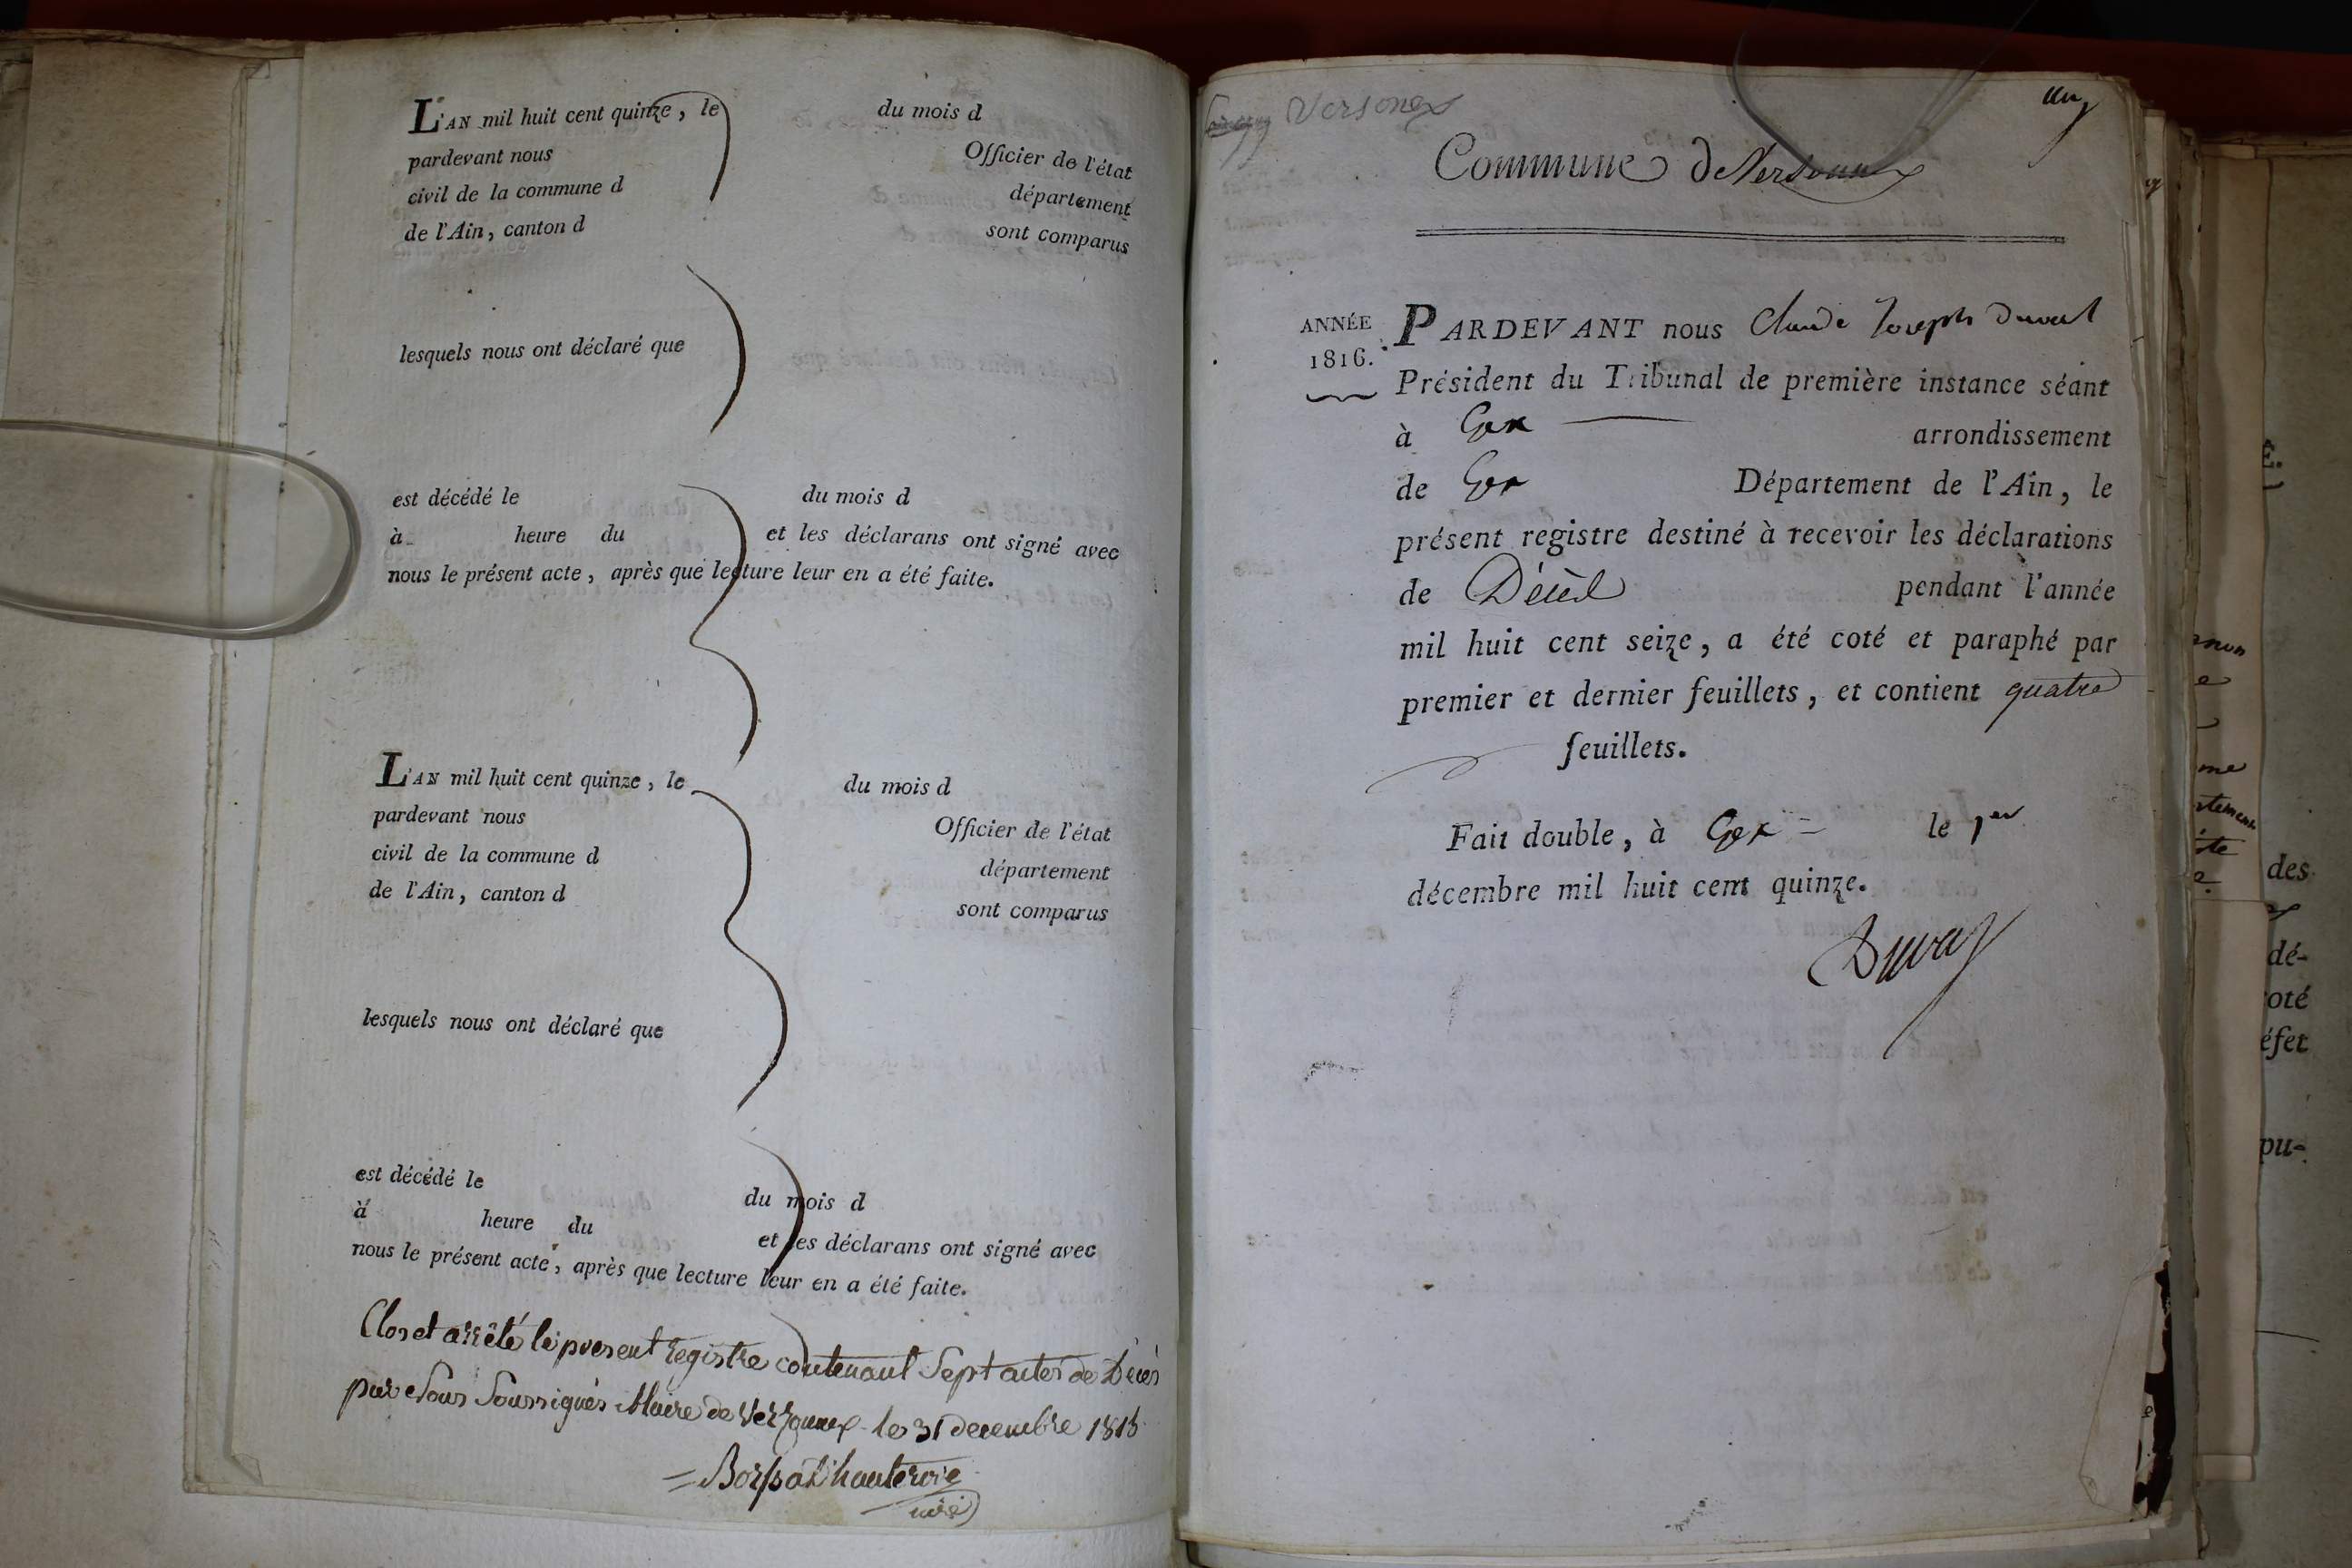 L'AN mil huit cent quinze, le du mois d
pardevant nous Officier de l'état
civil de la commune d département
de l'Ain, canton d sont comparus
lesquels nous ont déclaré que
est décédé le du mois d
à heure du et les déclarans ont signé avec
nous le présent acte, après que lecture leur en a été faite.
L'AN mil huit cent quinze, le du mois d
pardevant nous Officier de l'état
civil de la commune d département
de l'Ain, canton d sont comparus
lesquels nous ont déclaré que
est décédé le du mois d
à heure du et les déclarans ont signé avec
nous le présent acte, après que lecture leur en a été faite.
Clos et arrêté le present Registre contenant Sept actes de Décés
par Nous Soussignés Maire de Versonnex le 31 decembre 1815
Borssat d'hauterive
Versonex
Commune de Versonnex
ANNÉE
1816.
PARDEVANT nous Claude Joseph Duval
Président du Tribunal de première instance séant
à Gex arrondissement
de Gex Département de l'Ain, le
présent registre destiné à recevoir les déclarations
de Décès pendant l'année
mil huit cent seize, a été coté et paraphé par
premier et dernier feuillets, et contient quatre
feuillets.
Fait double, à Gex le 1er
décembre mil huit cent quinze.
Duval
des
dé-
oté
éfet
pu-